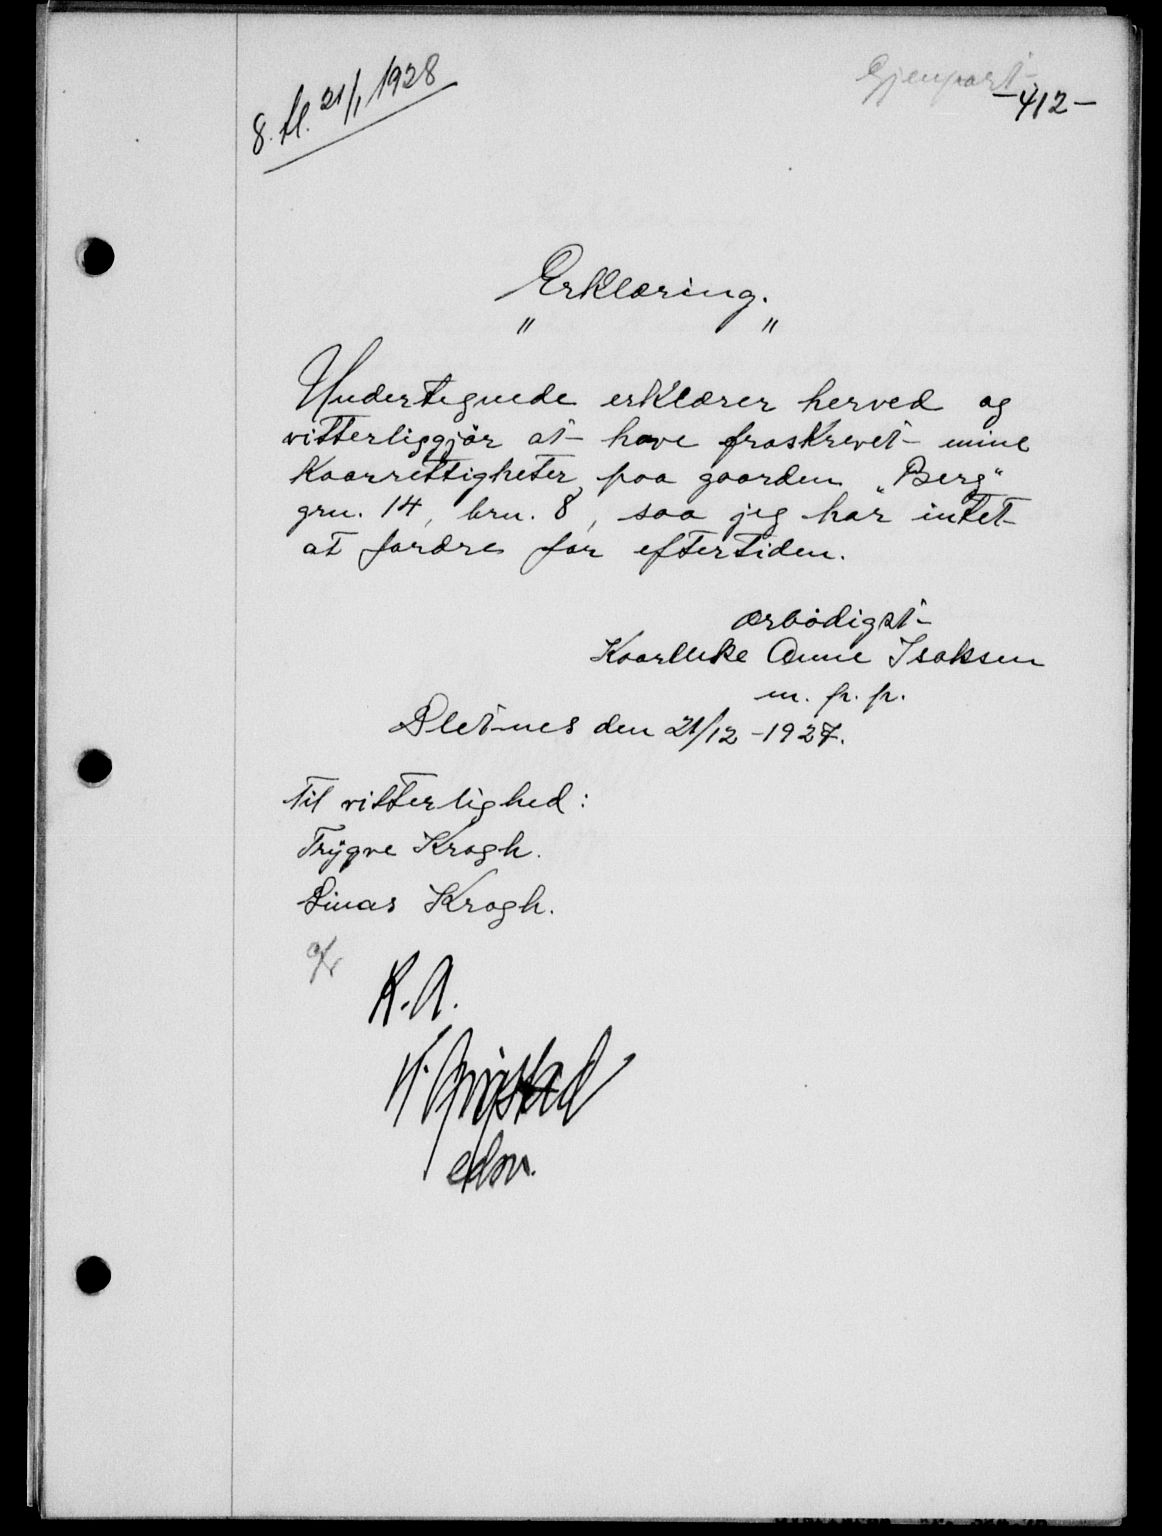 8. fl. 21/1 1928
Gjenpart
-412-
Erklæring.
" "
Undertegnede erklærer herved og
vitterliggjör at have fraskrevet mine
Kaarrettigheter paa gaarden "Berg"
grn. 14, brn. 8, saa jeg har intet
at fordre for eftertiden.
ærbödigst
Kaarenke Anne Isaksen
m. p. p.
Sletnes den 21/12-1927.
Til vitterlighed:
Trygve Krogh.
Einar Krogh.
R. A.
edsv.